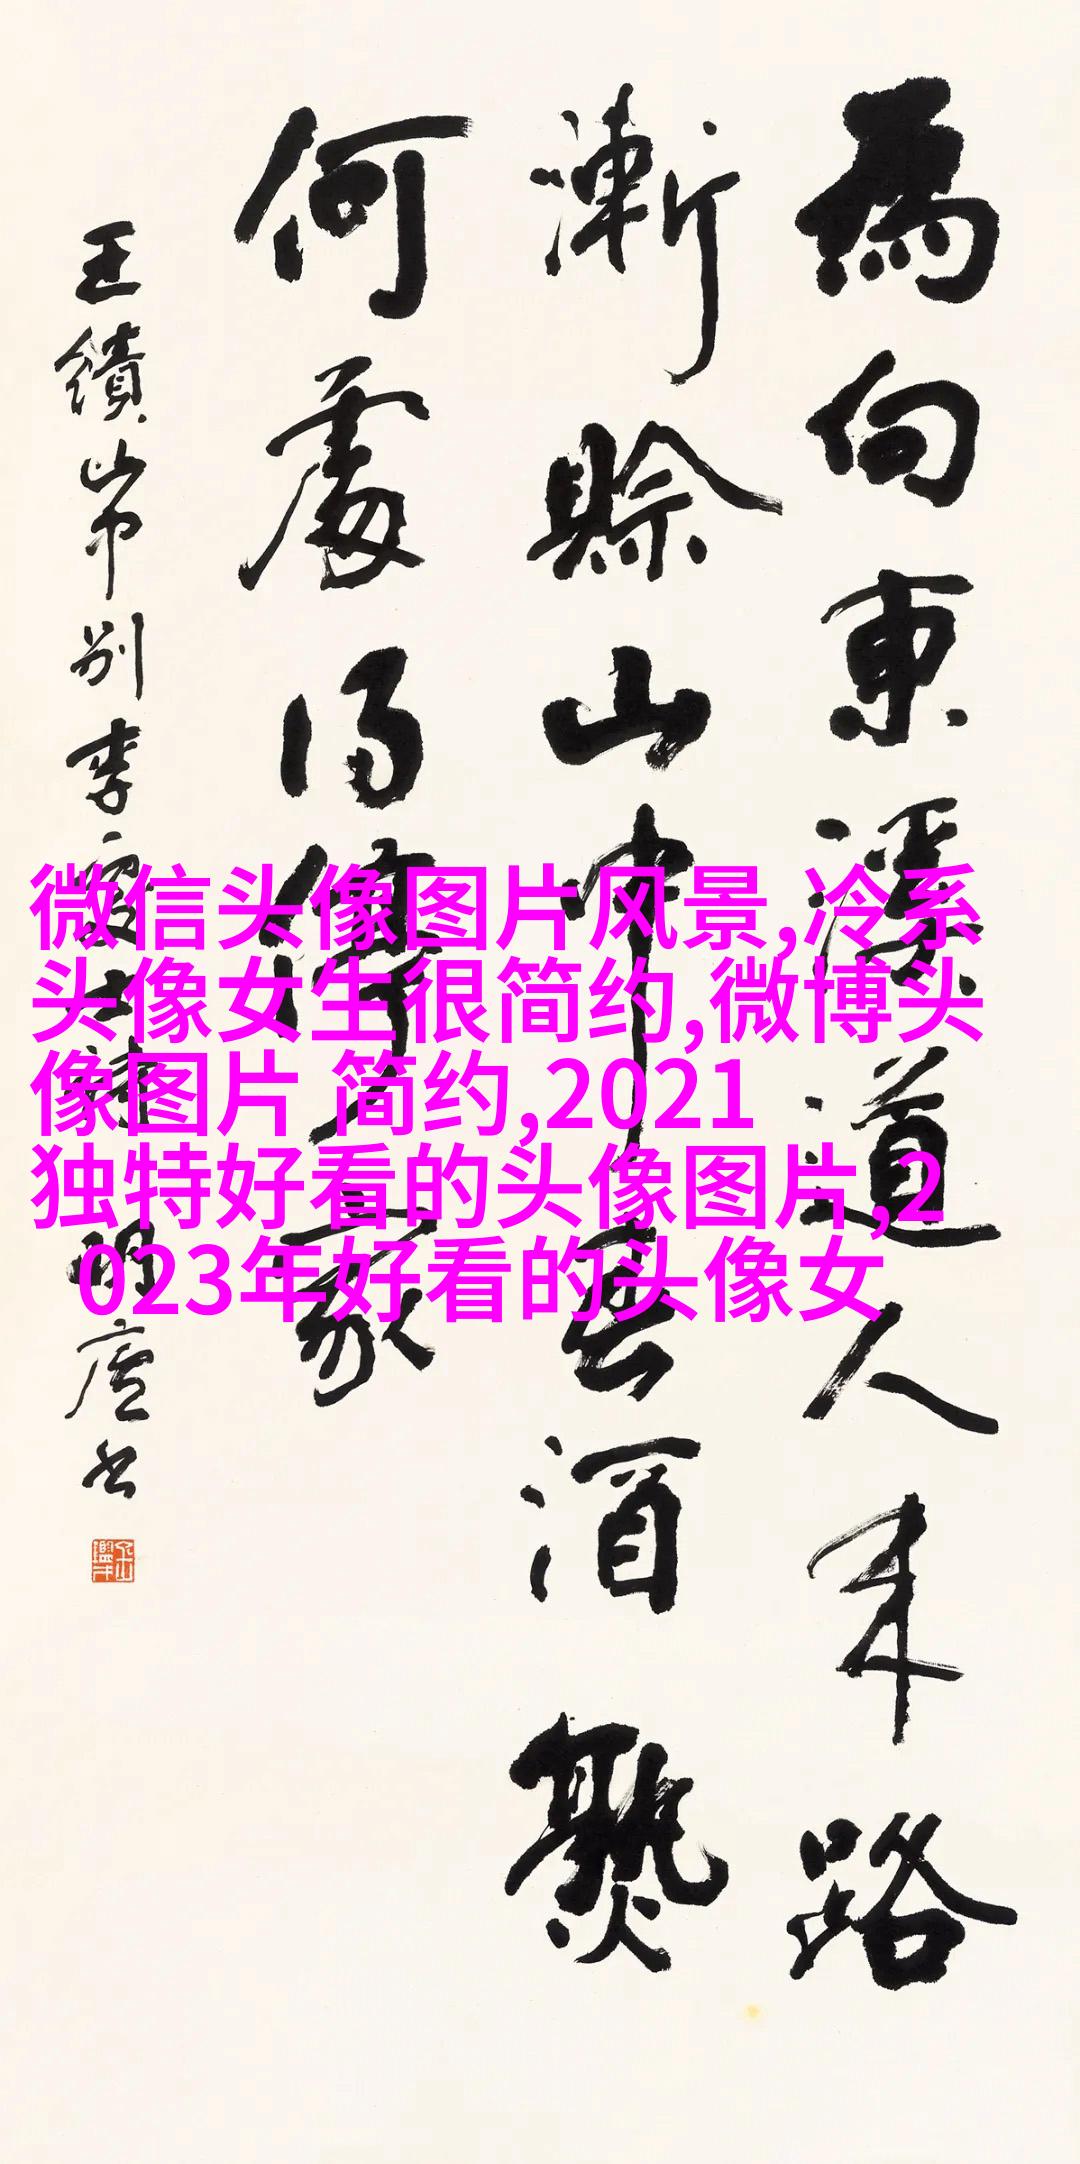 為向東溪道人来路
漸賒山中春酒熟
何處得停家
王績山中别李處士詩 廬書
微信头像图片风景,冷系
头像女生很简约,微博头
像图片 简约,2021
独特好看的头像图片,2
023年好看的头像女